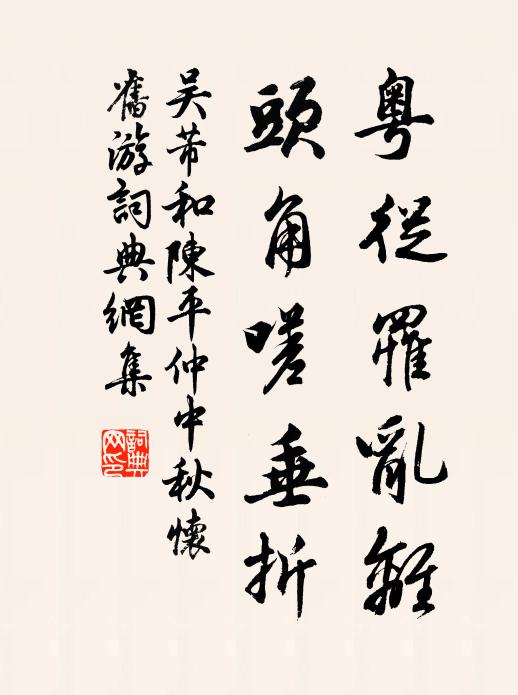 粵從罹亂離
頭角嗟垂折
吴芾和陳平仲中秋懷
舊游詞典網集
詞典网印